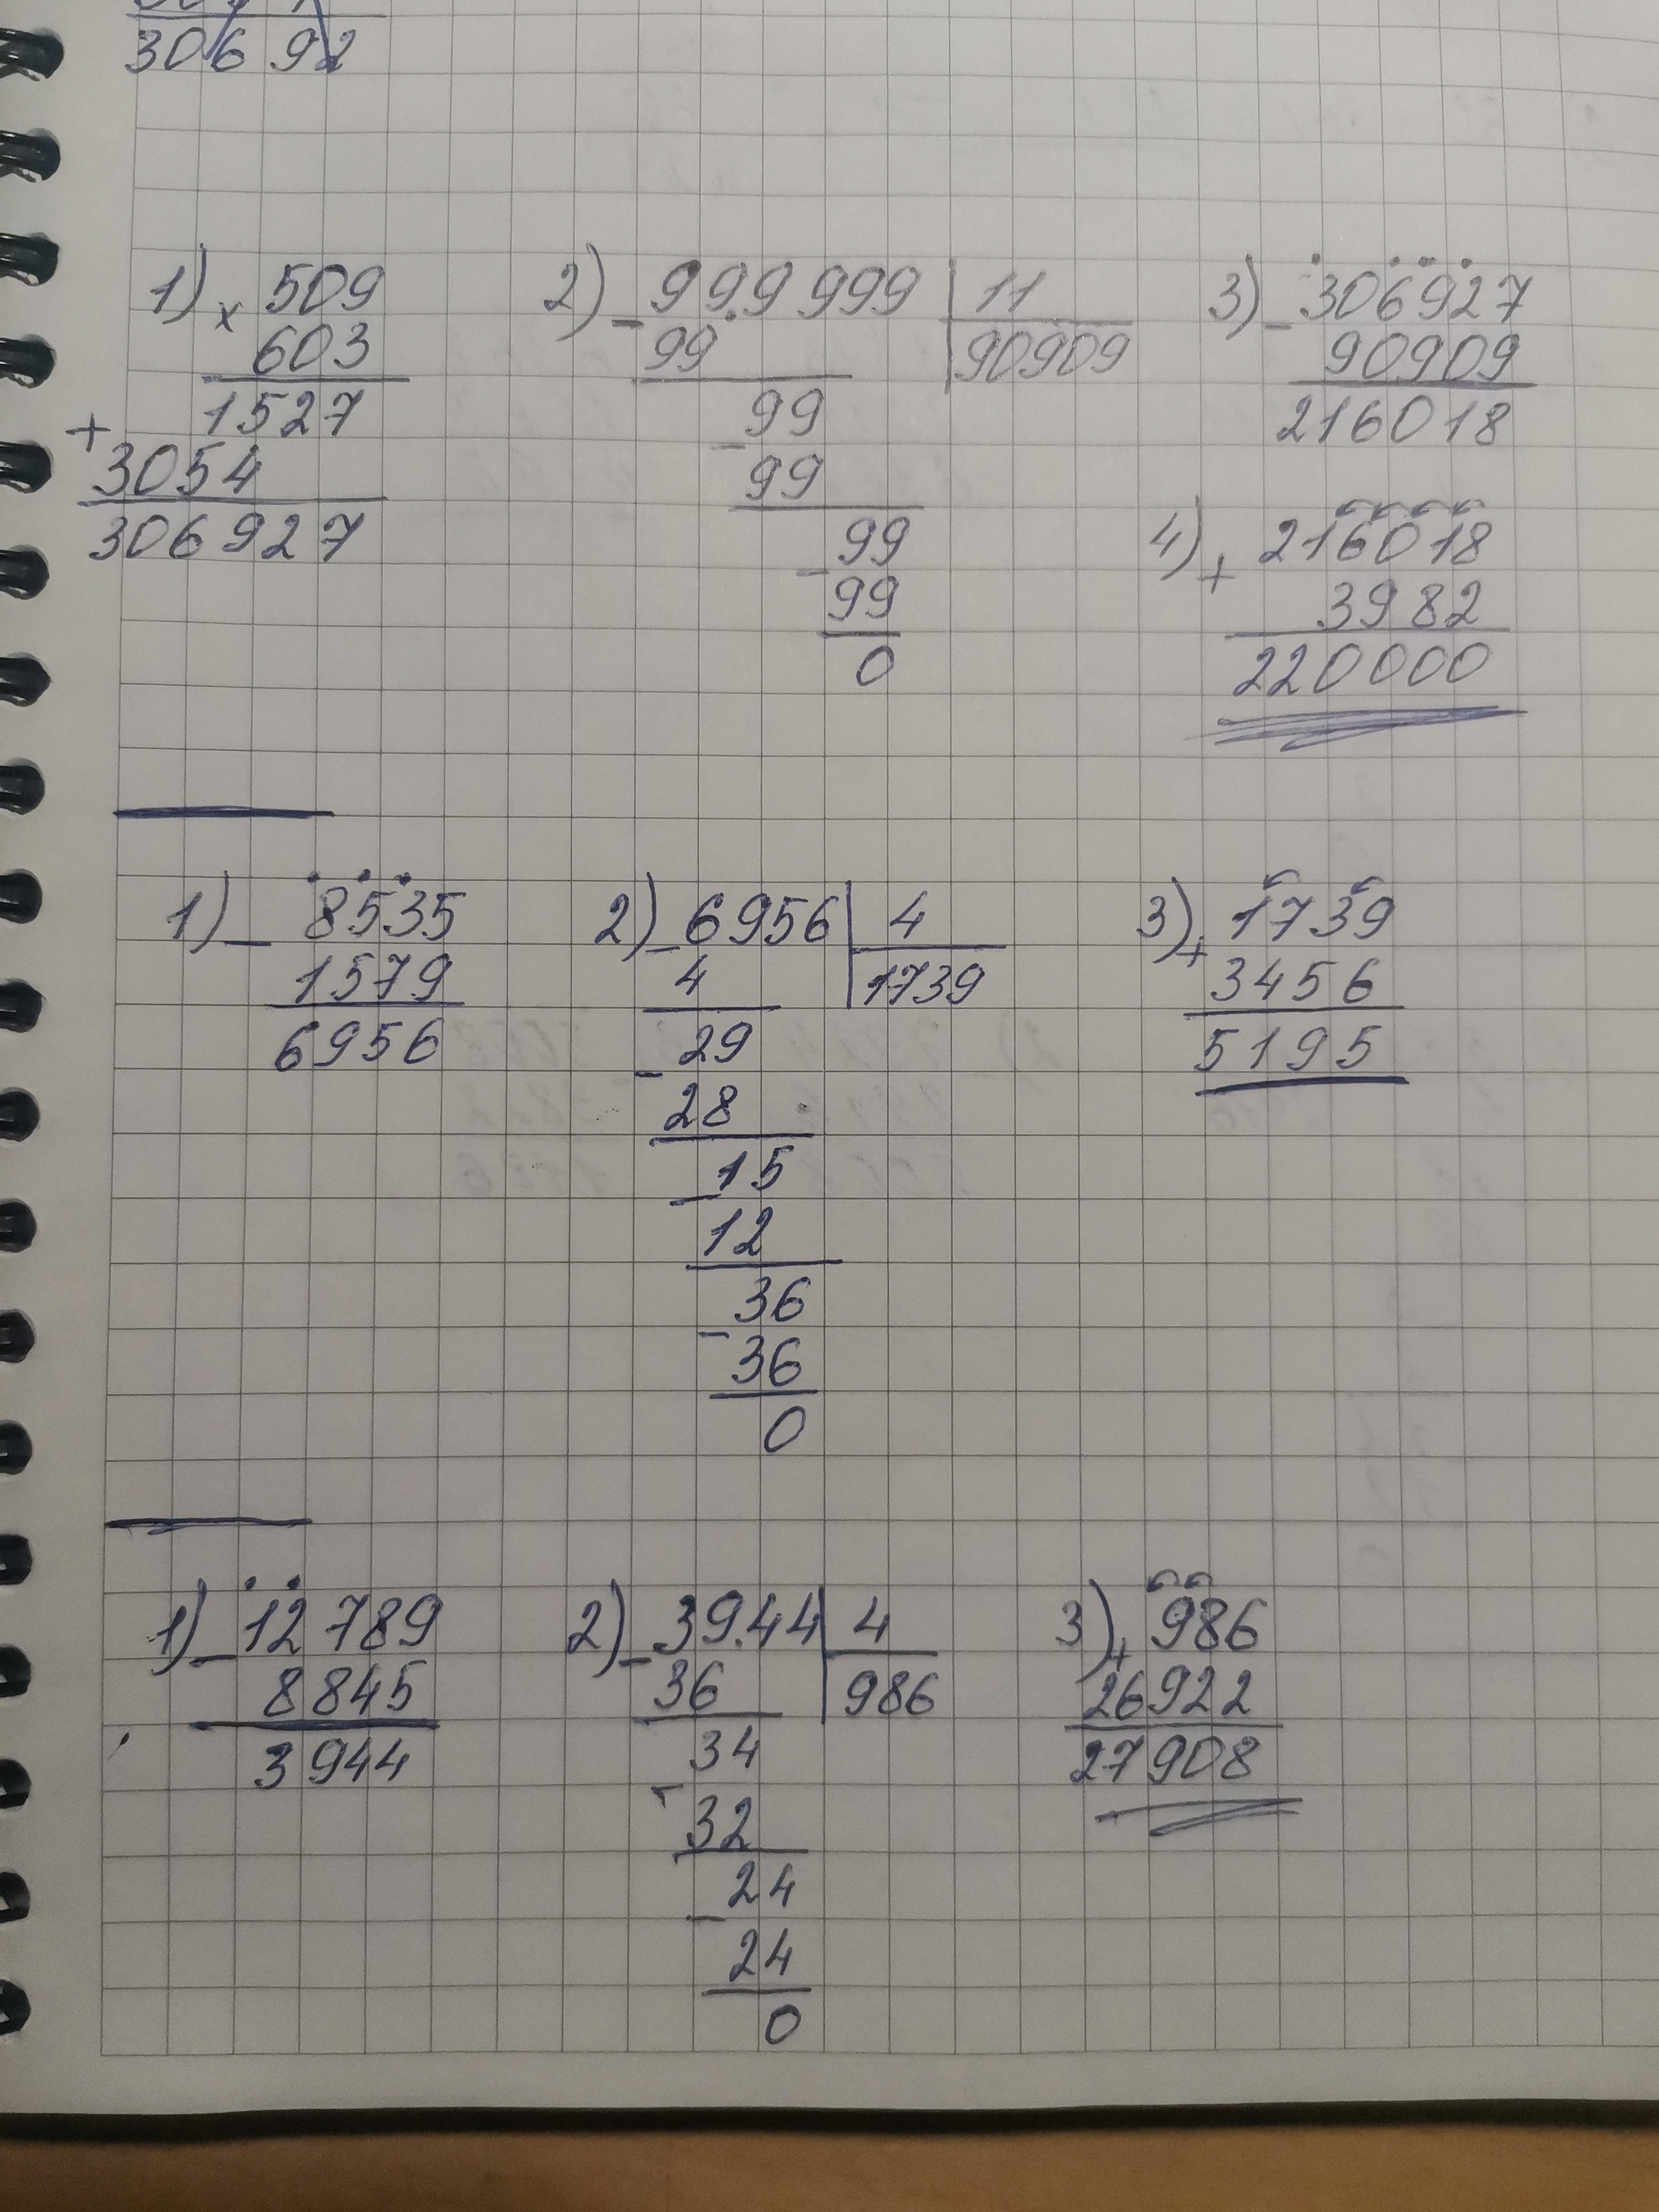 30692
1) × 509
603
1527
+
3054
306927
2) - 999999 | 11
99 | 90909
99
- 99
99
- 99
0
3) - 306927
90909
216018
4) + 216018
3982
220000
1) - 8535
1579
6956
2) - 6956 | 4
4 | 1739
29
- 28
15
- 12
36
- 36
0
3) + 1739
3456
5195
1) - 12789
8845
3944
2) - 3944 | 4
36 | 986
34
- 32
24
- 24
0
3) + 986
26922
27908